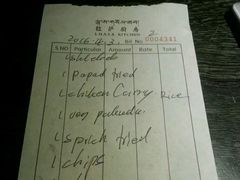 拉萨厨房
LHASA KITCHEN
2016.4.3. Bill No. 0004341
S.NO Particular Amount Rate Total
1 papad fried
1 chicken Curry Rice
1 veg pakoda
1 fried
1 chips